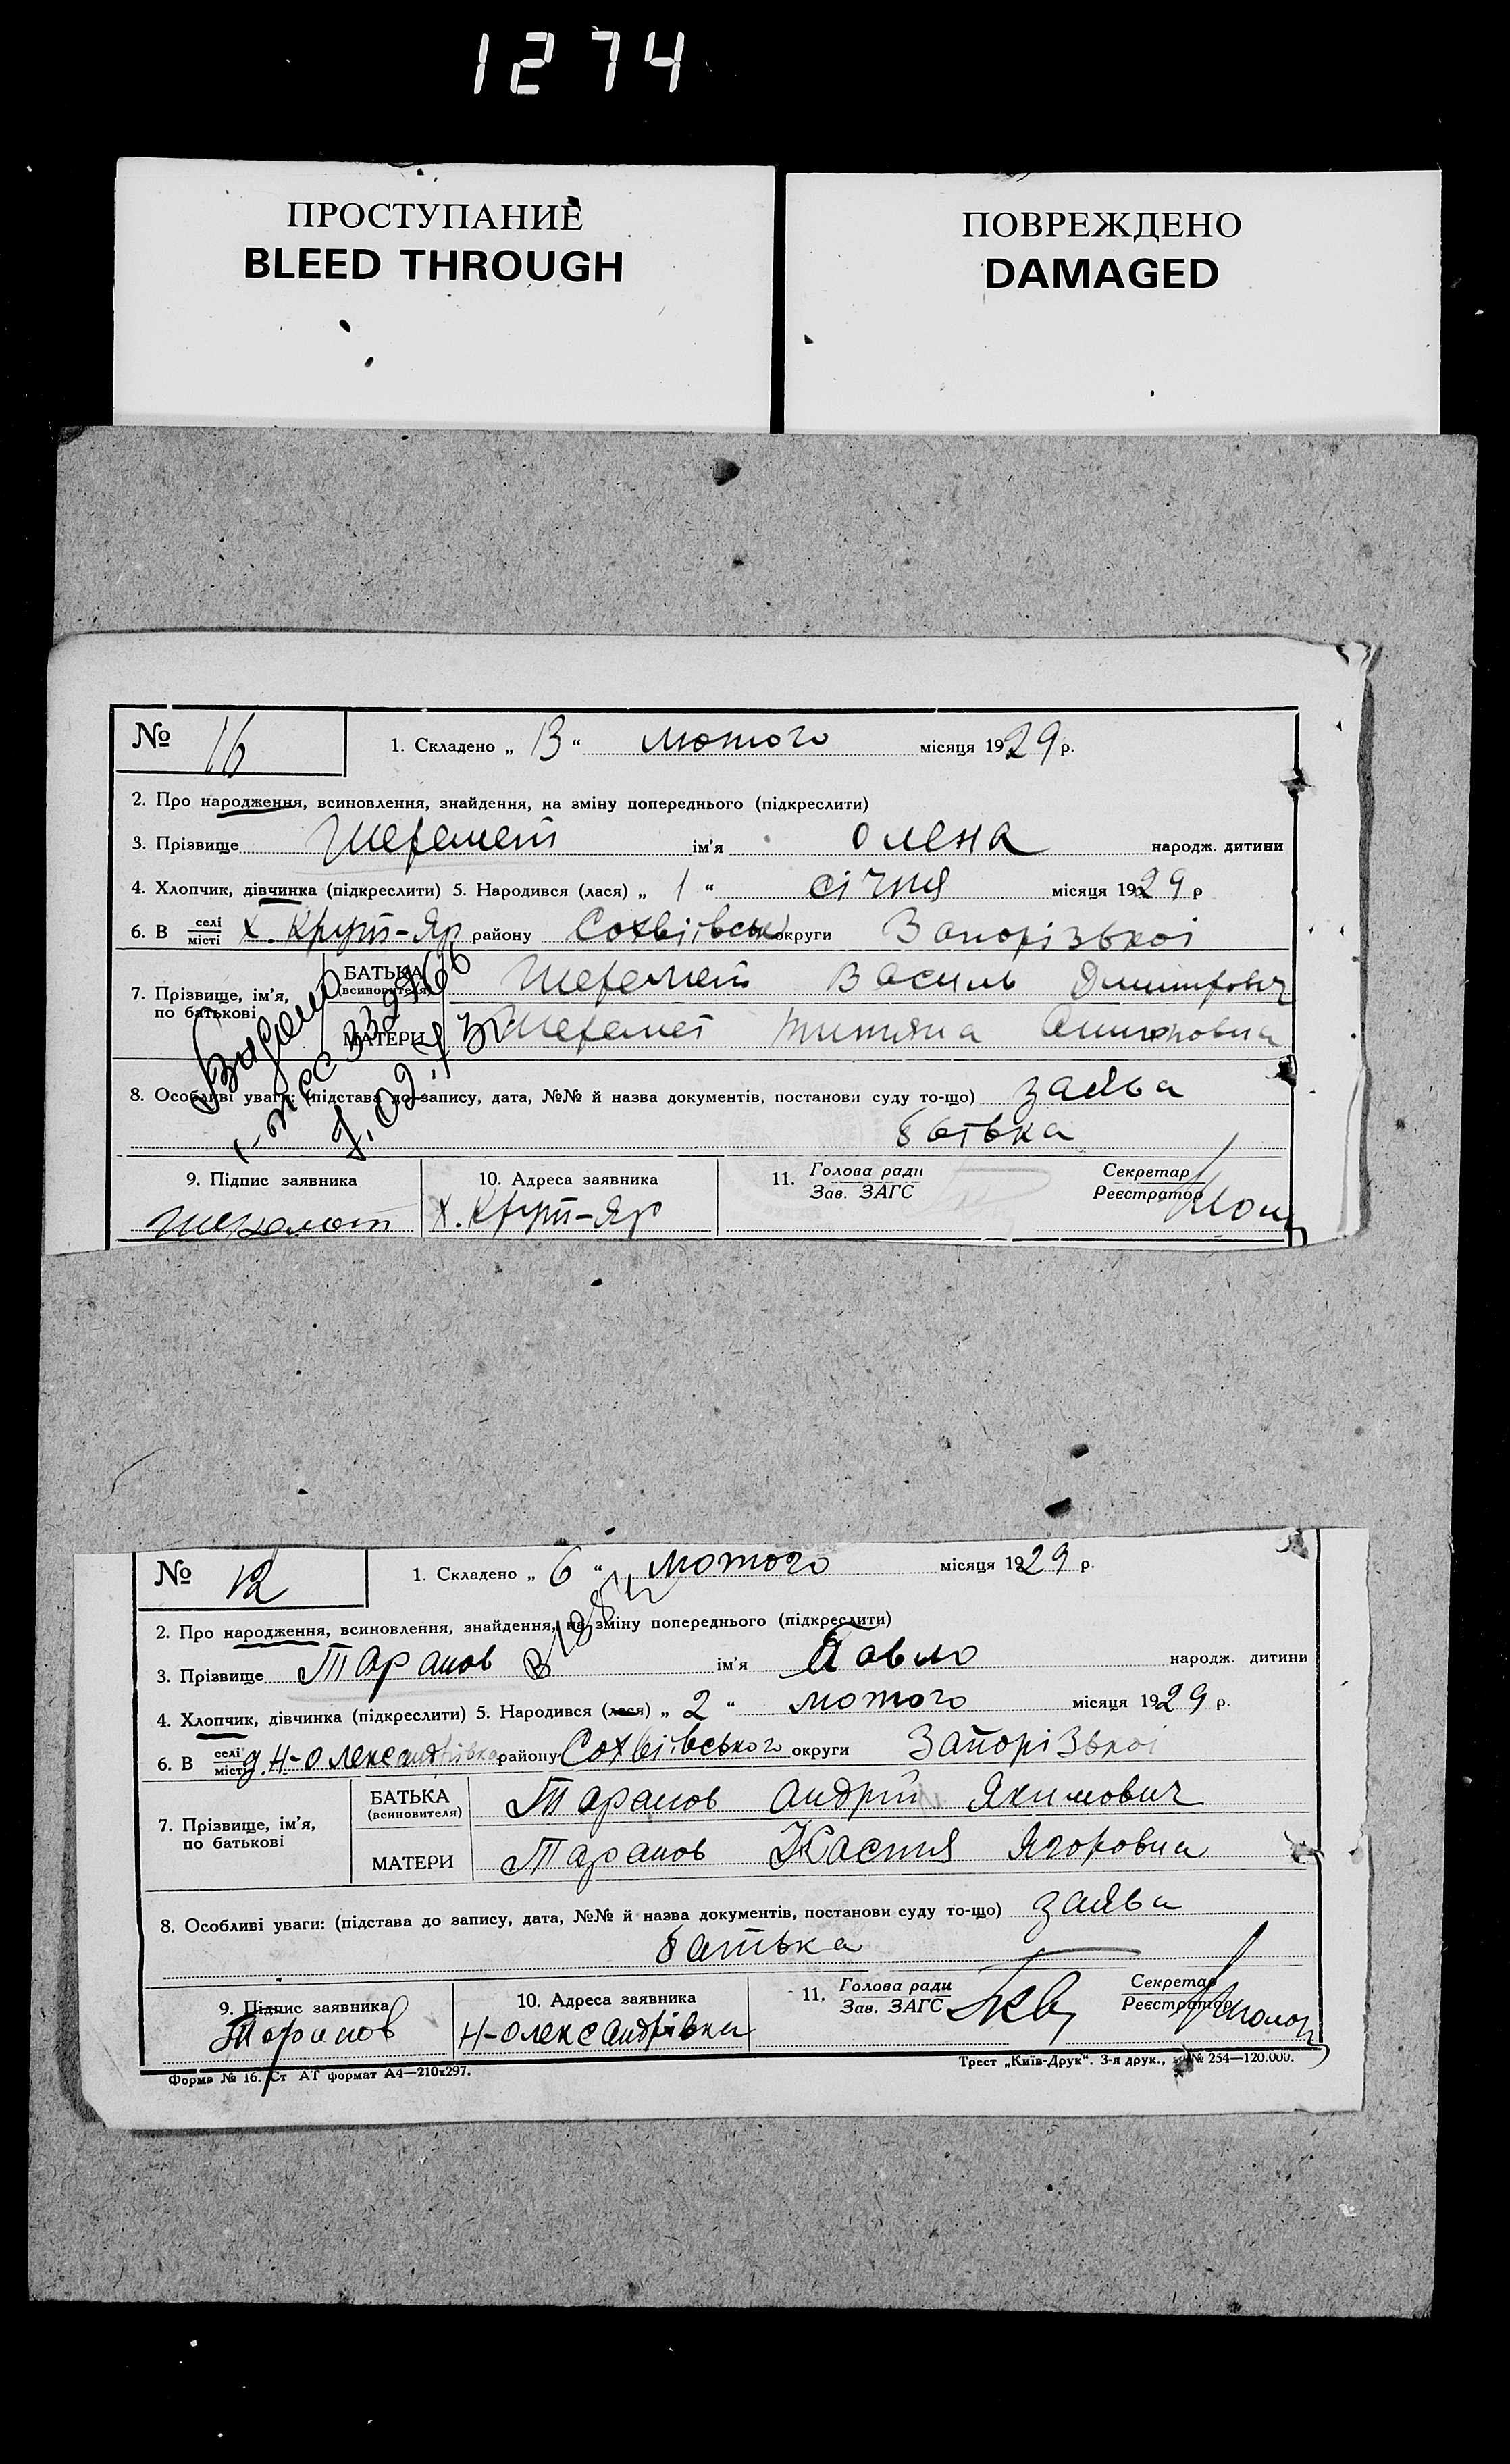 1274
ПРОСТУПАНИЕ
BLEED THROUGH
ПОВРЕЖДЕНО
DAMAGED
№ 16
1. Складено „ 13 “ лютого місяця 1929 р.
2. Про народження, всиновлення, знайдення, на зміну попереднього (підкреслити)
3. Прізвище Шеремет ім'я олена народж. дитини
4. Хлопчик, дівчинка (підкреслити) 5. Народився (лася) „ 1 “ січня місяця 1929 р
6. В селі місті х. Крут-Яр району округи Запорізької
7. Прізвище, ім'я, по батькові
БАТЬКА (всиновителя) Шеремет Василь Дмитрович
МАТЕРИ Шеремет
Видано
8. Особливі уваги: (підстава до запису, дата, №№ й назва документів, постанови суду то-що) заява
батька
9. Підпис заявника
10. Адреса заявника
11. Голова ради Зав. ЗАГС
Секретар Реєстратор
х. Крут-Яр
№ 12
1. Складено „ 6 “ лютого місяця 1929 р.
2. Про народження, всиновлення, знайдення, на зміну попереднього (підкреслити)
3. Прізвище Таранов ім'я Павло народж. дитини
4. Хлопчик, дівчинка (підкреслити) 5. Народився (лася) „ 2 “ лютого місяця 1929 р.
6. В селі місті Н-олександрівка району округи Запорізької
7. Прізвище, ім'я, по батькові
БАТЬКА (всиновителя) Таранов Андрій Якимович
МАТЕРИ Таранов Настя Ягоровна
8. Особливі уваги: (підстава до запису, дата, №№ й назва документів, постанови суду то-що) заява
батька
9. Підпис заявника
10. Адреса заявника
11. Голова ради Зав. ЗАГС
Секретар Реєстратор
Таранов
Н-олександрівка
Форма № 16. Ст АТ формат А4—210x297.
Трест „Київ-Друк“. 3-я друк., № 254—120.000.